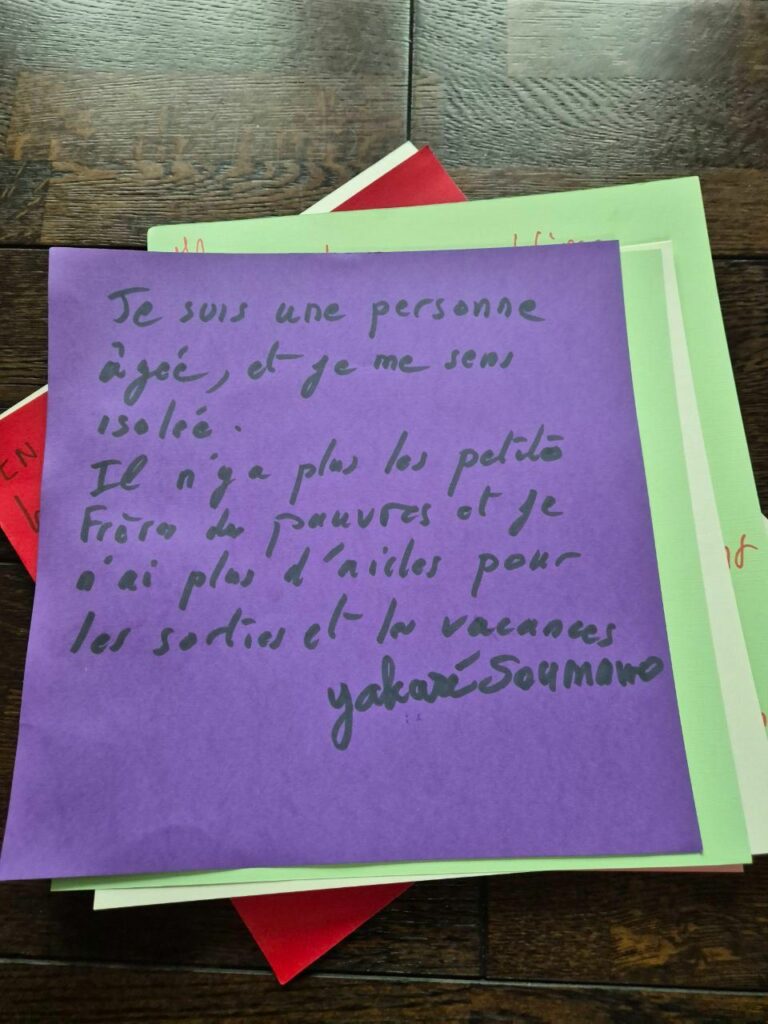 Je suis une personne
âgeé, et je me sens
isolée.
Il n'y a plus les petits
Frères des pauvres et je
n'ai plus d'aides pour
les sorties et les vacances
yakaré Soumano
EN